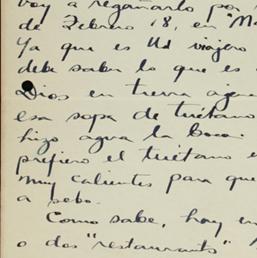 voy a regañarlo por
de Febrero 18, en "M
Ya que es Ud viajero
debe saber lo que es
Dios en tierra
esa sopa de tuétano
hizo agua la boca.
prefiero el tuétano
muy calientes para que
a sebo.
Como sabe, hay en
o dos "restaurants"